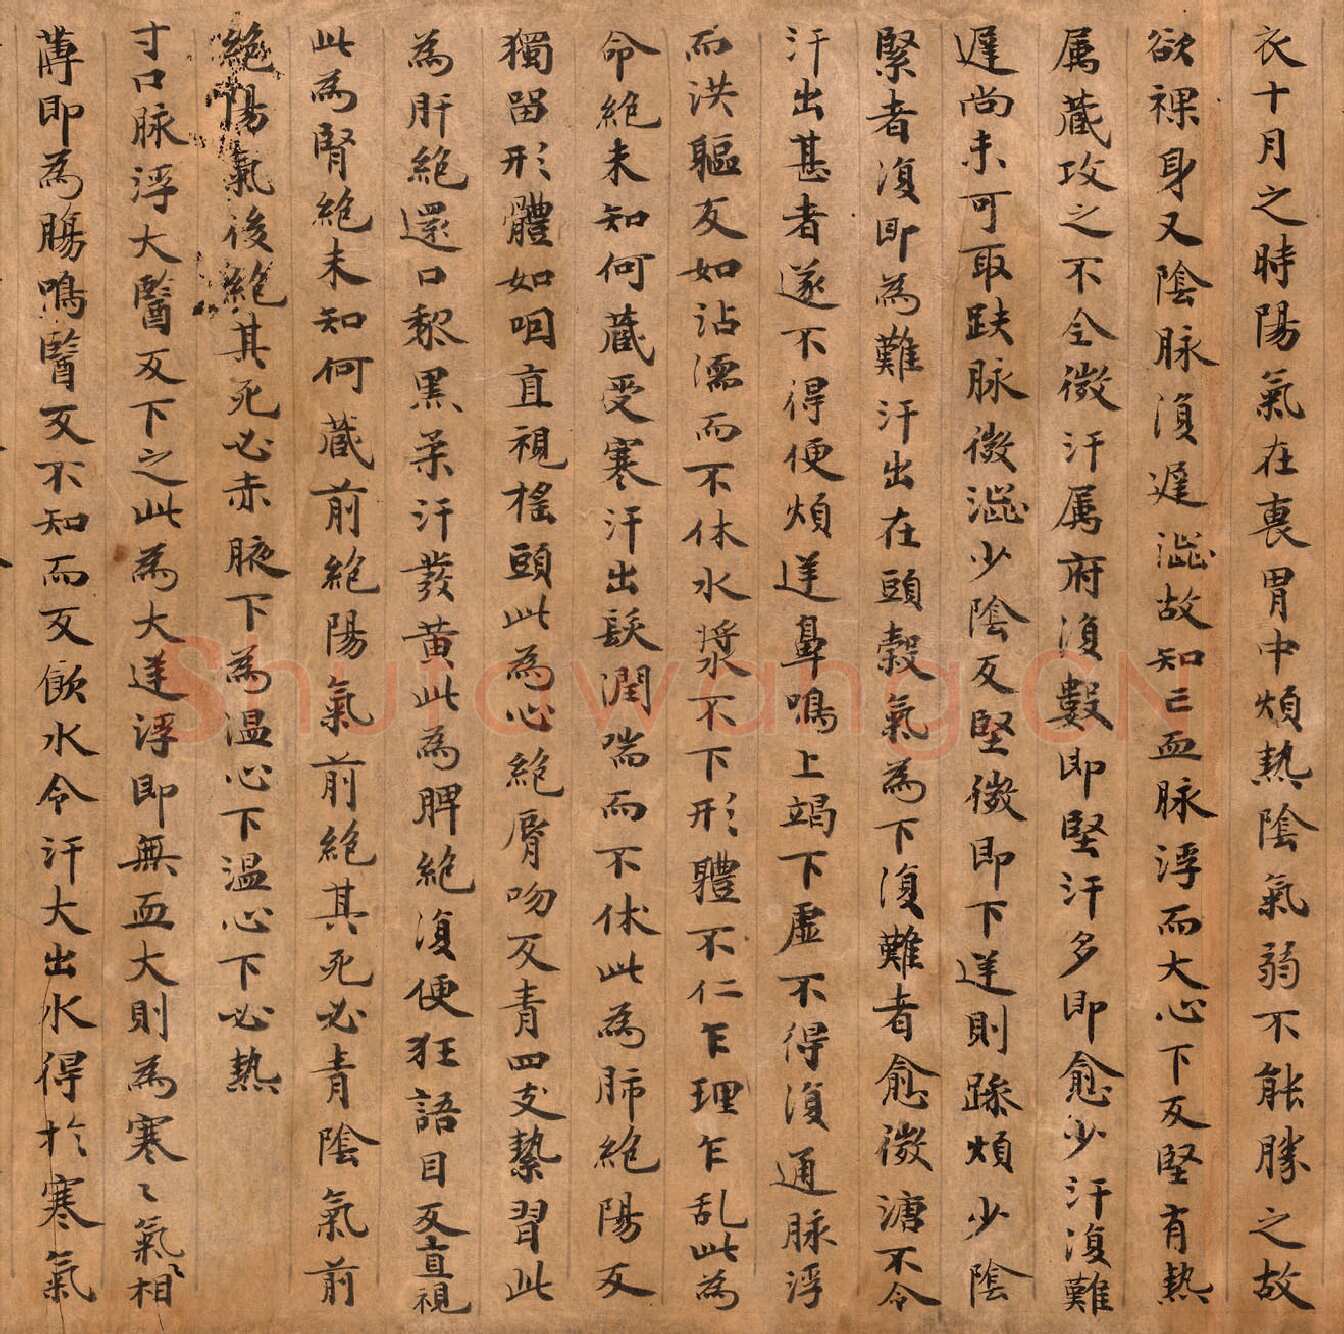 衣十月之時陽氣在裏胃中煩熱陰氣弱不能勝之故
欲裸身又陰脉復遲澁故知亡血脉浮而大心下反堅有熱
属藏攻之不令微汗属府復數即堅汗多即愈少汗復難
遲尚未可取趺脉微澁少陰反堅微即下逆則躁煩少陰
緊者復即為難汗出在頭穀氣為下復難者愈微溏不令
汗出甚者遂不得便煩逆鼻鳴上竭下虛不得復通脉浮
而洪軀反如沾濡而不休水漿不下形體不仁乍理乍乱此為
命絶未知何藏受寒汗出髮潤喘而不休此為肺絶陽反
獨留形體如咽直視搖頭此為心絶脣吻反青四支漐習此
為肝絶還口黎黒柔汗發黄此為脾絶復便狂語目反直視
此為腎絶未知何藏前絶陽氣前絶其死必青陰氣前
絶陽氣後絶其死必赤腋下為温心下温心下必熱
寸口脉浮大醫反下之此為大逆浮即無血大則為寒〻氣相
薄即為腸鳴醫反不知而反飲水令汗大出水得於寒氣
Shufawang.CN